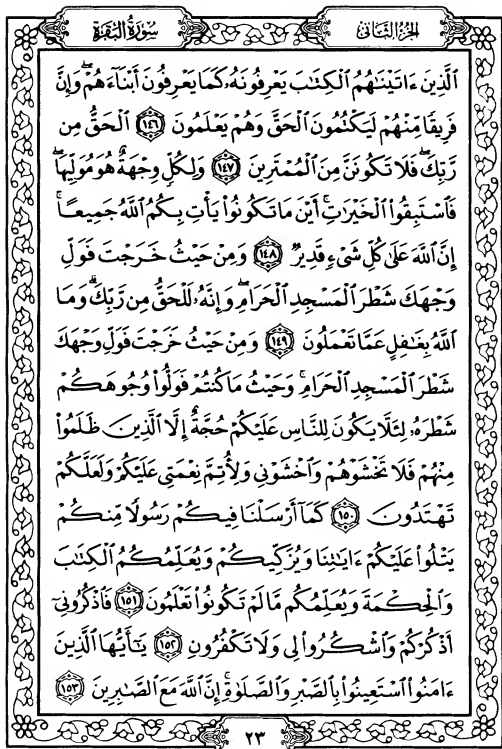 سورة البقرة الجزء الثاني
الَّذِينَ ءَاتَيْنَٰهُمُ ٱلْكِتَٰبَ يَعْرِفُونَهُۥ كَمَا يَعْرِفُونَ أَبْنَآءَهُمْ ۖ وَإِنَّ
فَرِيقًا مِّنْهُمْ لَيَكْتُمُونَ ٱلْحَقَّ وَهُمْ يَعْلَمُونَ ١٤٦ ٱلْحَقُّ مِن
رَّبِّكَ ۖ فَلَا تَكُونَنَّ مِنَ ٱلْمُمْتَرِينَ ١٤٧ وَلِكُلٍّ وِجْهَةٌ هُوَ مُوَلِّيهَا ۖ
فَٱسْتَبِقُوا۟ ٱلْخَيْرَٰتِ ۚ أَيْنَ مَا تَكُونُوا۟ يَأْتِ بِكُمُ ٱللَّهُ جَمِيعًا ۚ
إِنَّ ٱللَّهَ عَلَىٰ كُلِّ شَىْءٍ قَدِيرٌ ١٤٨ وَمِنْ حَيْثُ خَرَجْتَ فَوَلِّ
وَجْهَكَ شَطْرَ ٱلْمَسْجِدِ ٱلْحَرَامِ ۖ وَإِنَّهُۥ لَلْحَقُّ مِن رَّبِّكَ ۗ وَمَا
ٱللَّهُ بِغَٰفِلٍ عَمَّا تَعْمَلُونَ ١٤٩ وَمِنْ حَيْثُ خَرَجْتَ فَوَلِّ وَجْهَكَ
شَطْرَ ٱلْمَسْجِدِ ٱلْحَرَامِ ۚ وَحَيْثُ مَا كُنتُمْ فَوَلُّوا۟ وُجُوهَكُمْ
شَطْرَهُۥ لِئَلَّا يَكُونَ لِلنَّاسِ عَلَيْكُمْ حُجَّةٌ إِلَّا ٱلَّذِينَ ظَلَمُوا۟
مِنْهُمْ فَلَا تَخْشَوْهُمْ وَٱخْشَوْنِى وَلِأُتِمَّ نِعْمَتِى عَلَيْكُمْ وَلَعَلَّكُمْ
تَهْتَدُونَ ١٥٠ كَمَآ أَرْسَلْنَا فِيكُمْ رَسُولًا مِّنكُمْ
يَتْلُوا۟ عَلَيْكُمْ ءَايَٰتِنَا وَيُزَكِّيكُمْ وَيُعَلِّمُكُمُ ٱلْكِتَٰبَ
وَٱلْحِكْمَةَ وَيُعَلِّمُكُم مَّا لَمْ تَكُونُوا۟ تَعْلَمُونَ ١٥١ فَٱذْكُرُونِىٓ
أَذْكُرْكُمْ وَٱشْكُرُوا۟ لِى وَلَا تَكْفُرُونِ ١٥٢ يَٰٓأَيُّهَا ٱلَّذِينَ
ءَامَنُوا۟ ٱسْتَعِينُوا۟ بِٱلصَّبْرِ وَٱلصَّلَوٰةِ ۚ إِنَّ ٱللَّهَ مَعَ ٱلصَّٰبِرِينَ ١٥٣
٢٣